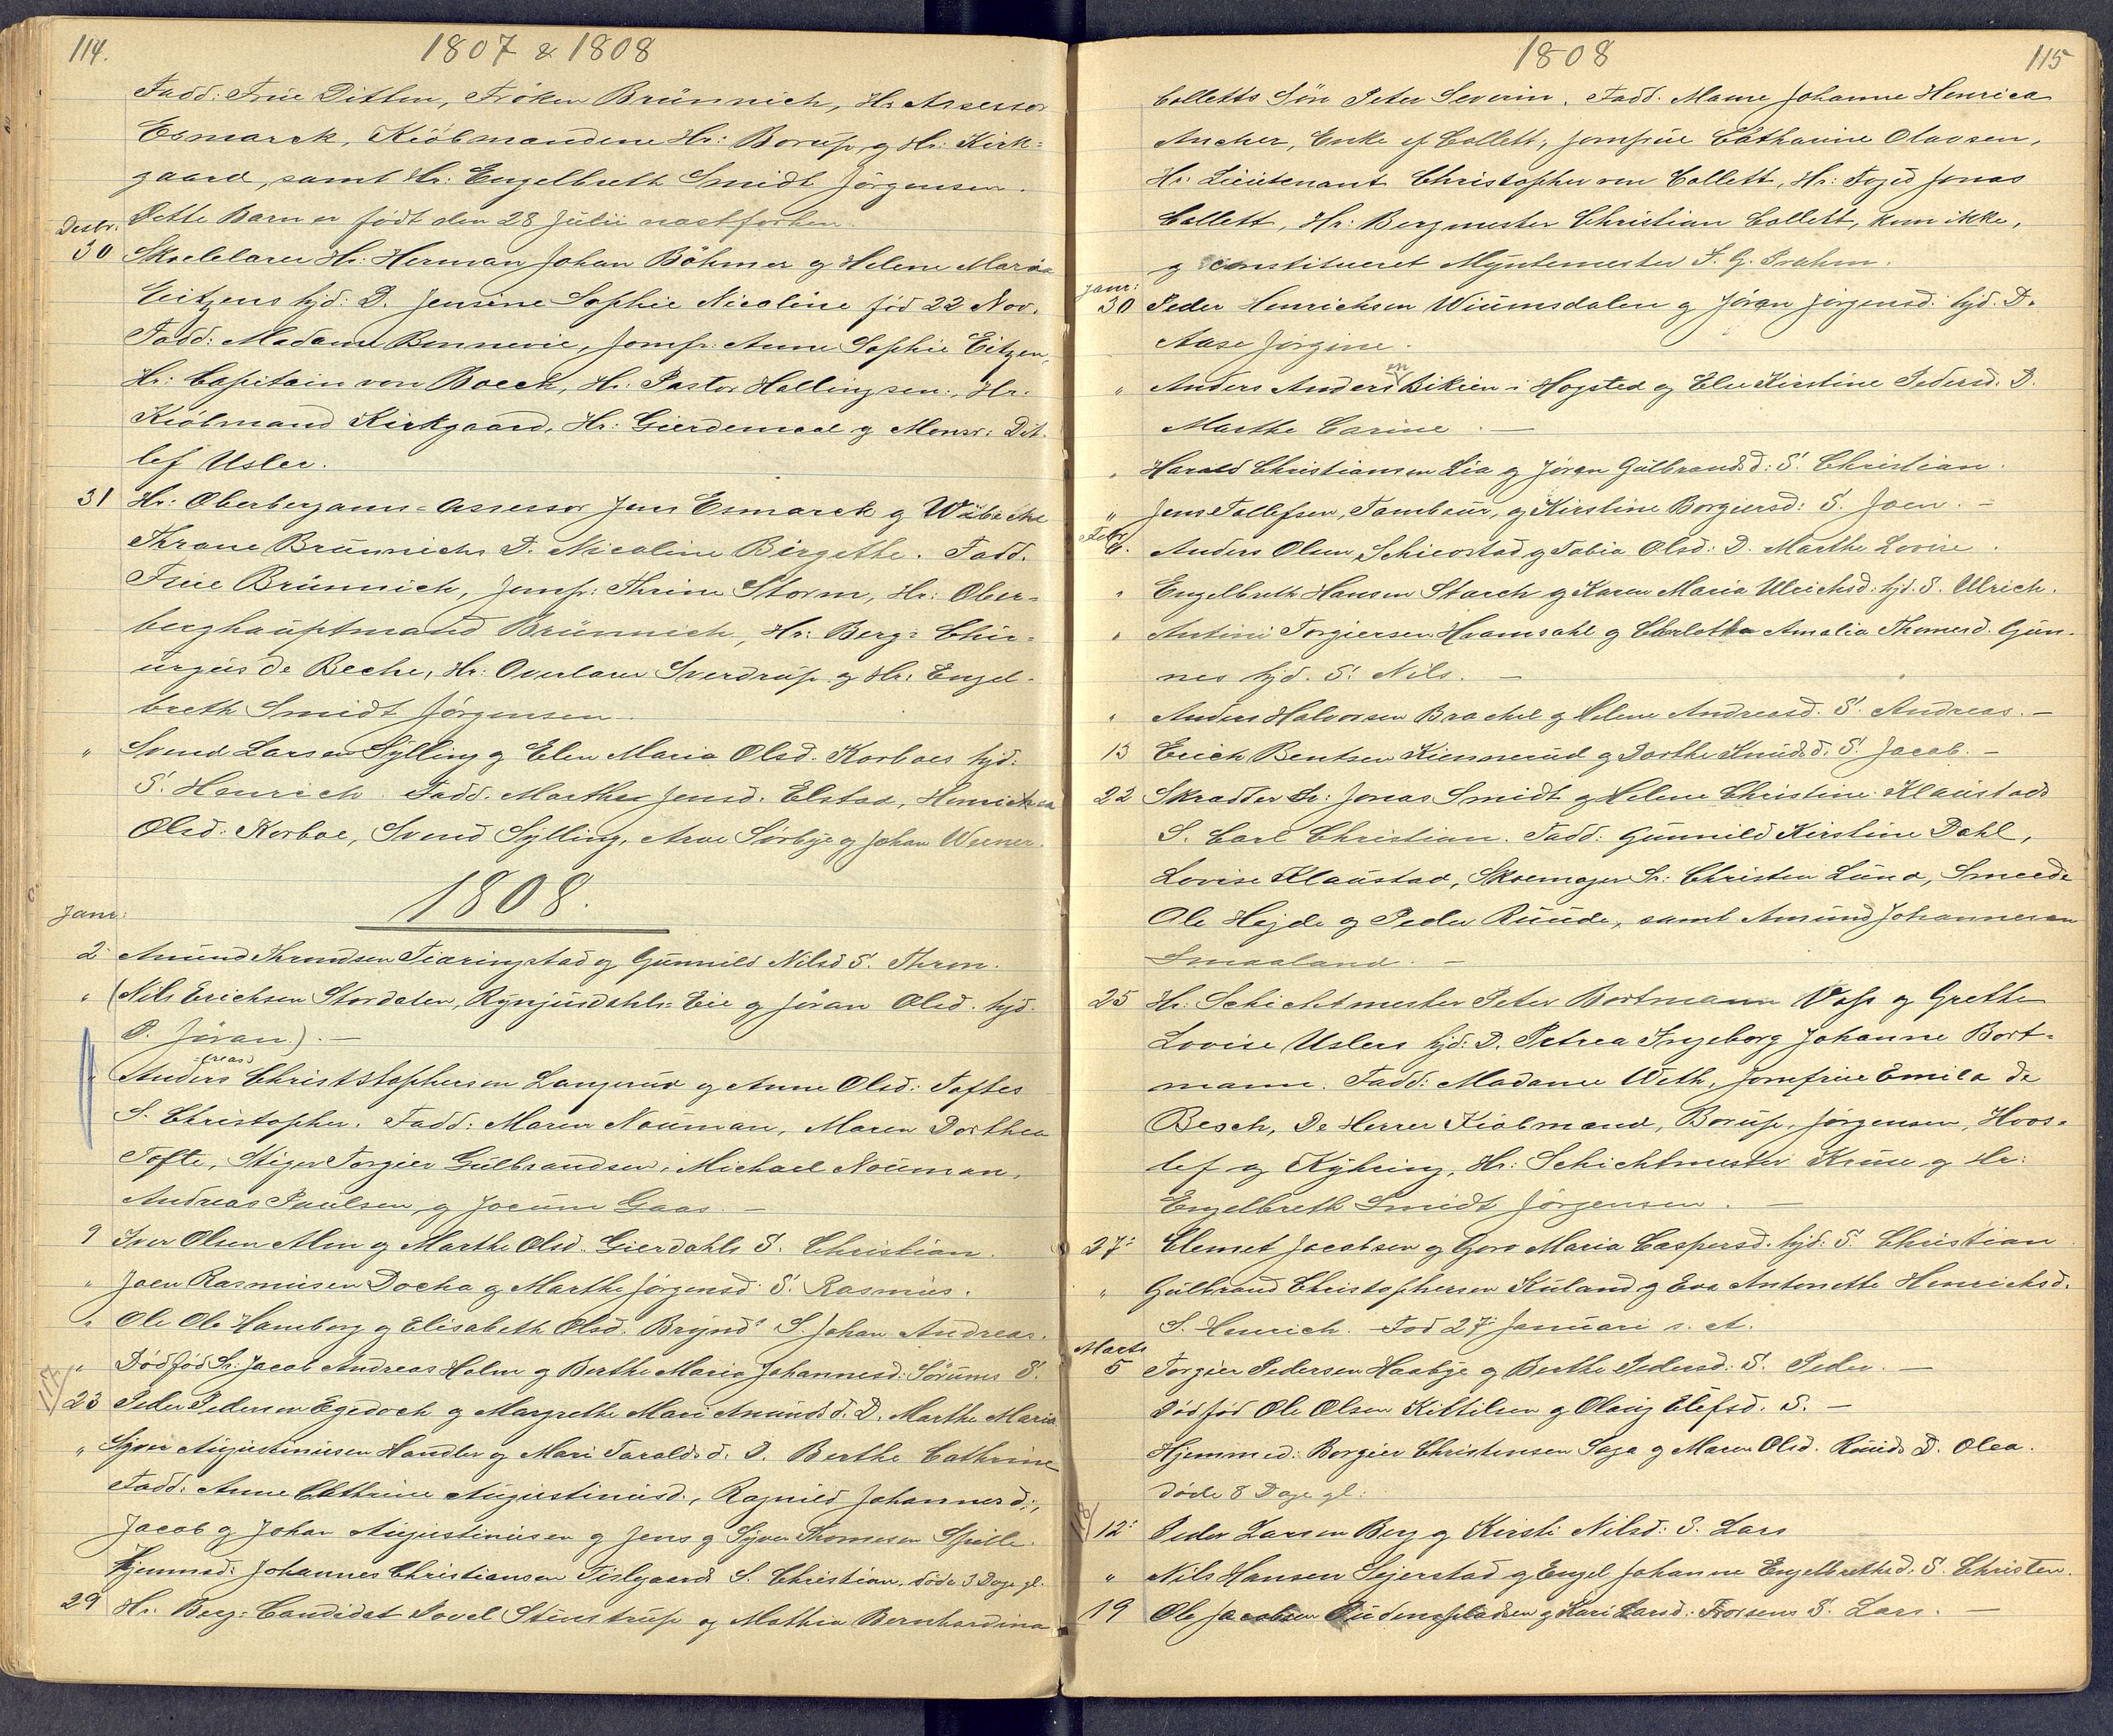 114.
1807 & 1808
Fadd: Frue Ditten, Fröken Brünnich, Hr. Assessor
Esmarck, Kiöbmandene Hr: Borup, og Hr: Kirk=
gaard, samt Hr: Engelbreth Smidt Jörgensen.
Dette Barn er födt den 28 Julii nastforhen.
Desbr.
30 Skolelærer Hr: Herman Johan Böhmer og Helene Maria
Eitzens hjd: D. Jensine Sophie Nicoline fød 22 Nov.
Fadd: Madame Bennevie, Jomfr: Anne Sophie Eitzen,
Hr: Capitain von Boeck, Hr. Pastor Hellingsen, Hr.
Kiöbmand Kirkgaard, Hr: Gierdemoe og Monsr: Dit-
lef Usler.
31 Hr: Oberbergamts-Assessor Jens Esmarck og Wibecke
Thrane Brünnichs D. Nicoline Birgethe. Fadd.
Frue Brünnich, Jomfr: Thrine Storm, Hr: Ober=
berghauptmand Brünnich, Hr: Berg= Chir=
urgus de Beche, Hr: Overlærer Sverdrup og Hr: Engel-
breth Smidt Jörgensen.
" Svend Larsen Sylling og Elen Maria Olsd. Korboes hjd:
S. Henrich. Fadd. Marthe Jensd. Elstad, Henrichea
Olsd. Korboe, Svend Sylling, Arve Sörbye og Johan Werner.
1808.
Janr:
2 Amund Throndsen Tiaringstad og Gunnild Nilsd S. Thron.
" (Nils Erichsen Stordalen, Rynjusdahls= Eie og Jöran Olsd. hjd.
D. Jöran). —
-reas
" Anders Christstophersen Langerud og Anne Olsd: Toftes
S. Christopher. Fadd: Maren Nouman, Maren Dorthea
Tofte, Stiger Torgier Gulbrandsen, Michael Nouman,
Andreas Paulsen og Jocum Gaas. —
9 Iver Olsen Alm og Marthe Olsd. Gierdahls S. Christian.
" Joen Rasmusen Docka og Marthe Jörgensd. S. Rasmus.
" Ole Ole Hamborg og Elisabeth Olsd. Brynds S. Johan Andreas.
" Dödfød Sr: Jacob Andreas Holm og Berthe Maria Johannesd: Sörums S.
23 Peder Pedersen Egedock og Margrethe Mari Amundsd. D. Marthe Maria
" Syver Augustinusen Handler og Mari Taraldsd. D. Berthe Cathrine
Fadd: Anne Cathrine Augustinusd., Ragnild Johannesd.,
Jacob og Johan Augustinusen og Jens og Syver Thomesen Spille.
Hjemmed: Johannes Christiansen Tislgaards S. Christian. döde 3 Dage gl.
29 Hr. Berg: Candidat Povel Steenstrup og Mathia Bernhardina
1808
115
Colletts Sön Peter Severin. Fadd. Mame Johanne Henrica
Ancher, Enke ef Collett, Jomfrue Cathrine Olavsen,
Hr. Lieutenant Christopher von Collett, Hr: Foged Jonas
Collett, Hr: Bergmester Christian Collett, kom ikke,
og constitueret Myntemester F. G. Prahm.
Janr:
30 Peder Henrichsen Wiumsdalen og Jöran Jörgensd. hjd. D.
Aase Jörgine.
en
" Anders Anders Bikien i Hogsted og Else Kirstine Pedersd. D.
Marthe Carine. —
" Harald Christiansen Lia og Jöran Gulbrandsd: S. Christian.
" Jens Tollefsen, Tambour, og Kirstine Borgiersd: S. Joen. —
Febr
6. Anders Olsen Schieostad og Tobia Olsd: D. Marthe Lovise.
" Engelbreth Hansen Starch og Karen Maria Ulrichsd. hjd. S. Ulrich.
" Antoni Torgiersen Hvamsahl og Charlotha Amalia Thomesd. Gun-
nes hjd. S. Nils. —
" Anders Halvorsen Brachel og Helene Andreasd. S. Andreas. —
13 Erich Bentsen Kiennerud og Dorthe Knudsd. S. Jacob. —
22 Skradder Sr: Jonas Smidt og Helene Christine Klaustads
S. Carl Christian. Fadd: Gunnild Kirstine Dahl,
Lovise Klaustad, Skoemager Sr: Christen Lund, Smeede
Ole Hejde og Peder Ruude, samt Amund Johannesen
Smaaland. —
25 Hr. Schichtmester Peter Bortmann Voss og Grethe
Lovise Uslers hjd: D. Petrea Ingeborg Johanne Bort=
mann. Fadd: Madame Weth, Jomfrue Emila de
Besch, De Herrer Kiöbmænd, Borup, Jörgensen, Hoos=
lef og Kyhring, Hr: Schichtmester Kruse og Hr:
Engelbreth Smidt Jörgensen. —
27: Clemet Jacobsen og Goro Maria Caspersd. hjd: S. Christian
" Gulbrand Christophersen Kuland og Eva Antonette Henrichsd.
S. Henrich. Fød 27: Januari s. A.
Marts
5 Torgier Pedersen Haabye og Berthe Pedersd: S. Peder. —
Dödfød Ole Olsen Kittilsen og Olaug Elefsd. S. —
Hjemmed: Borgier Christensen Saga og Maren Olsd. Ruuds D. Olea.
döde 8 Dage gl:
12: Peder Larsen Berg og Kirsti Nilsd: S. Lars
" Nils Hansen Sejerstad og Engel Johanne Engelbrethsd. S. Christen.
19 Ole Jacobsen Rudenspladsen og Kari Larsd: Frorsens S. Lars. —